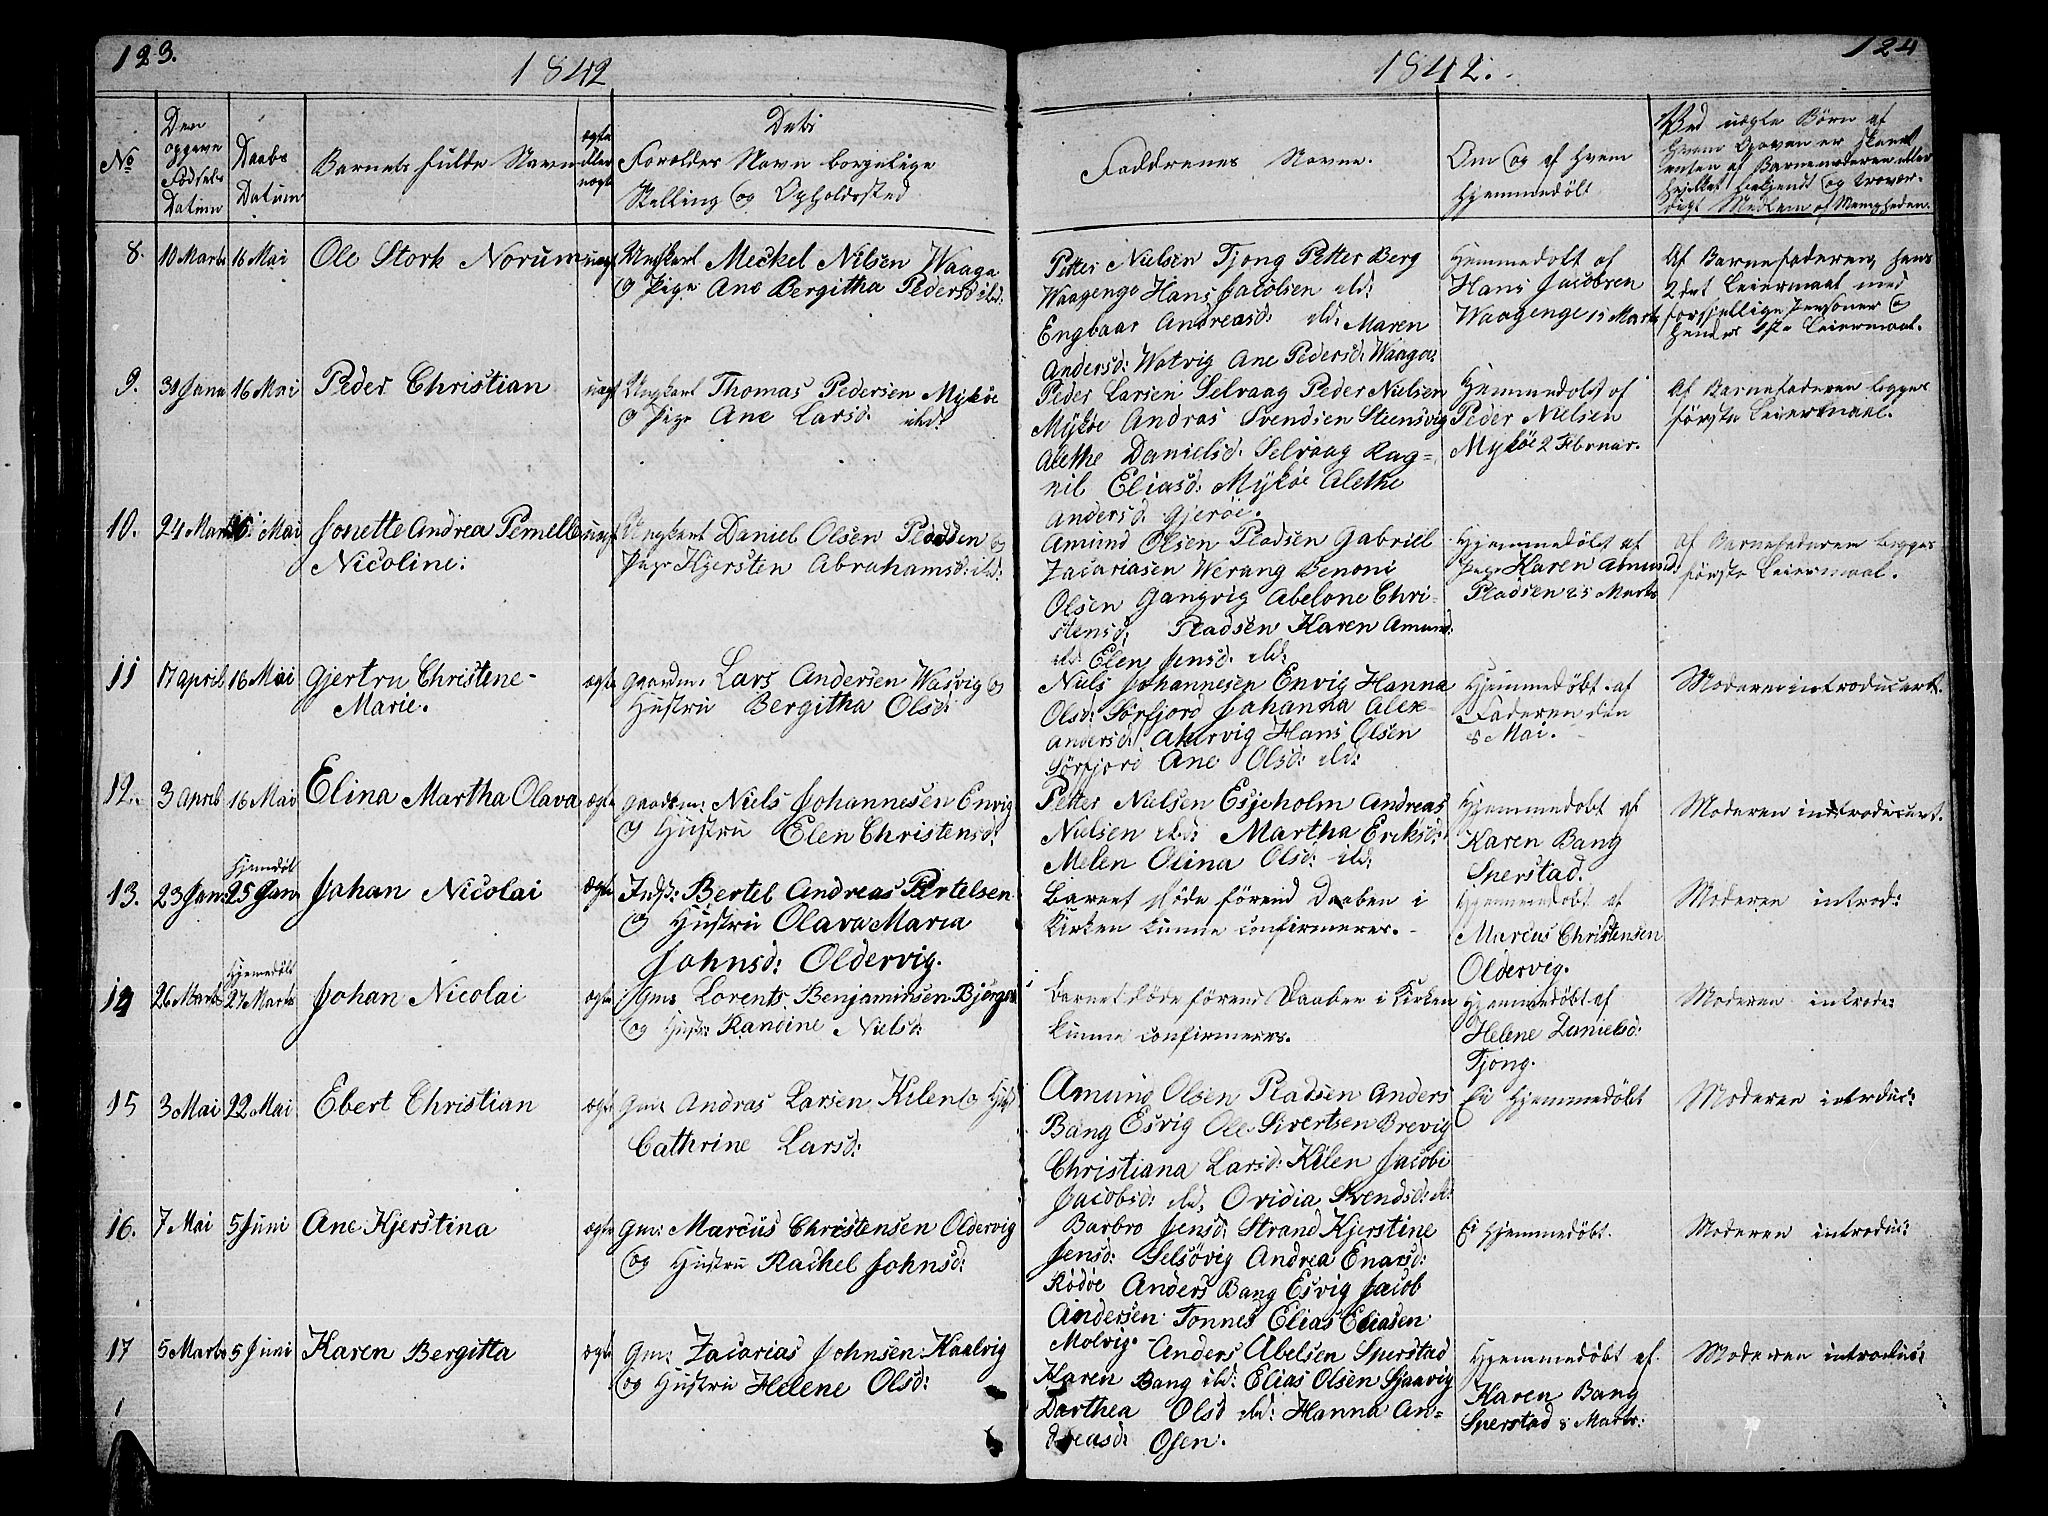 123.
1842
1842.
124
Dets
No
Den opgivne Fødsels Datum
Daabs Datum
Barnets fulde Navn
ægte eller uægte
Forældres Navn borgelige
Stelling og Opholdssted
Faddrenes Navne.
Om og af hvem
hjemmedøbt
Ved uægte Børn af
8. 10 Marts 16 Mai Ole Stork Norum uægt Ungkarl Meckel Nilsen Waaga
og Pige Ane Bergitha Pedersd: ibd:
Petter Nielsen Tjong Petter Berg
Waagenge Hans Jacobsen ibd:
Engbaar Andreasd: ibd: Maren
Andersd: Watvig Ane Pedersd: Waaga:
Hemmedobt af
Hans Jacobsen
Waagenge 15 Marts
Af Barnefaderen, hans
2det Leiermaal med
forskjellige Personer og
hendes 1ste Leiermaal.
9. 31 Janu 16 Mai Peder Christian uægt Ungkarl Thomas Pedersen Mykøe
og Pige Ane Larsd. ibd:
Peder Larsen Selvaag Peder Nielsen
Mykøe Andras Svendsen Steensvig
Alethe Danielsd. Selvaag Rag=
nil Eliasd: Mykøe Alethe
Andersd. Gjerøi.
Hemmedobt af
Peder Nielsen
Mykøe 2 Februar.
Af Barnefaderen begges
første Leiermaal.
10. 24 Marts 16 Mai Jonette Andrea Pernelle
Nicoline:
uægt Ungkarl Daniel Olsen Pladsen og
Pige Kjersten Abrahamsd: ibd:
Amund Olsen Pladsen Gabriel
Zacariasen Werang Benoni
Olsen Gangvig Abelone Chri-
stensd: Pladsen Karen Amund:
ibd: Elen Jensd. ibd:
Hjemmedøbt af
Pige Karen Amund:
Pladsen 25 Marts
af Barnefaderen begges
første Leiermaal.
11 17 april 16 Mai Gjertru Christene-
Marie.
ægte Gaardm: Lars Andersen Wasvig og
Hustru Bergitha Olsd:
Niels Johannesen Envig Hanna
Olsd: Sørfjord Johanna Alex-
andersd: Akervig Hans Olsen
Sørfjord Ane Olsd: ibd:
Hjemmedøbt af
Faderen den
8 Mai.
Moderen introducert.
12. 3 april 16 Mai Elina Martha Olava ægte Gaardm: Niels Johannesen Envig
og Hustru Elen Christensd:
Petter Nielsen Esjeholm Andreas
Nielsen ibd: Martha Eriksd:
Melen Olina Olsd: ibd:
Hjemmedobt af
Karen Bang
Sperstad.
Moderen introducert.
13. 23 Jan: Hjemdøbt 25 Jan Johan Nicolai ægte Inds: Bertel Andreas Bertelsen
og Hustru Olava Maria
Johnsd: Oldervig.
Barnet døde førend Daaben i
Kirken kunne confirmeres.
Hjemmedøbt af
Marcus Christensen
Oldervig.
Moderen introd:
14 26 Marts Hjemedøbt 27 Marts Johan Nicolai ægte Gm: Lorents Benjaminsen Bjerge
og Hustr: Randine Nielsd:
Barnet døde førend Daaben i Kirken
kunne confirmeres.
Hjemmedøbt af
Helene Danielsd:
Tjong.
Moderen introd:
15 3 Mai 22 Mai Ebert Christian ægte Gm: Andras Larsen Kilen og Hust
Cathrine Larsd:
Amund Olsen Pladsen Anders
Bang Esvig Ole Sivertsen Brevig
Christiana Larsd: Kilen Jacobi
Jacobsd: ibd. Ovidia Svendsd: ib:
Ei Hjemmedøbt
Moderen introduc:
16. 7 Mai 5 Juni Ane Kjerstina ægte Gm: Marcus Christensen Oldervig
og Hustru Rachel Johnsd:
Barbro Jensd: Strand Kjerstine
Jensd: Selsøvig Andrea Enarsd:
Rødøe Anders Bang Esvig Jacob
Andersen Tonnes Elias Eliasen
Molvig.
Ei Hjemmedøbt.
Moderen introduc:
17 5 Marts 5 Juni Karen Bergitta ægte Gm: Zacarias Johnsen Kaalvig
og Hustru Helene Olsd:
Anders Abelsen Sperstad
Karen Bang ibd: Elias Olsen Sjaavig
Dorthea Olsd ibd: Hanna An=
dreasd: Osen.
Hjemmedøbt af
Karen Bang
Sperstad 8 Marts:
Moderen introduc: